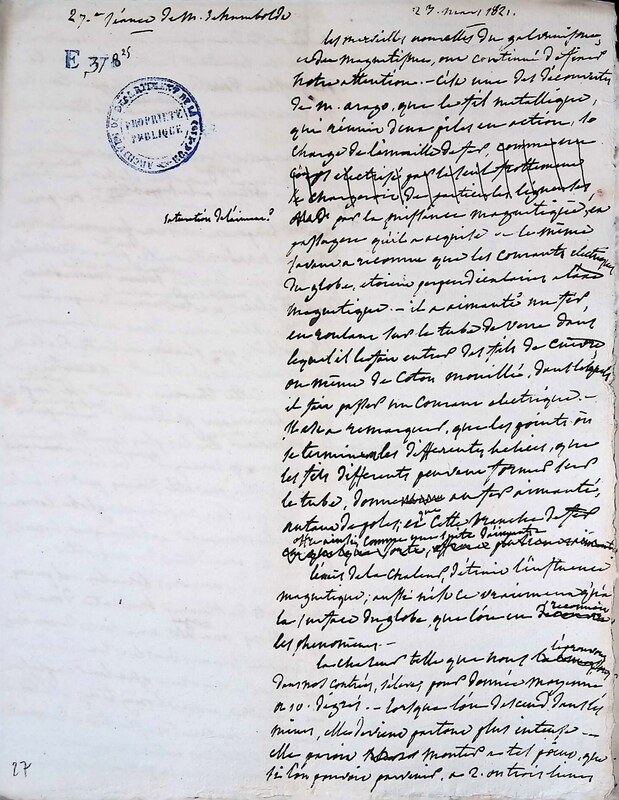 27.me séance de M. de humboldt
23. mars 1821.
E, 378 25
ARCHIVES DU DÉPARTEMENT DE LA CÔTE-D'OR
PROPRIÉTÉ PUBLIQUE
les merveilles nouvelles du galvanisme,
et du magnétisme, ont continué de fixer
notre attention. - C'est une des découvertes
de m. arago, que le fil métallique,
qui réunit d'une pile en action, se
charge de limaille de fer comme un
électrisé par le seul frottement
se chargeroit de particules ligneuses
par la puissance magnétique, en
passagere qu'il a acquise - le même
savant a reconnu que les courants electriques
du globe, etoient perpendiculaires à l'axe
magnétique. - il a aimanté un fer
en roulant sur le tube de verre dans
lequel il le fait entrer des fils de cuivre
ou même de coton mouillé, dans lesquels
il fait passer un courant electrique. -
a remarquer, que les points où
se terminent les differentes helices, que
les fils differents peuvent former sur
le tube, donnent au fer aimanté,
autant de poles, et que cette branche de fer
offre ainsi comme une suite d'aimants
de la chaleur, détruit l'influence
magnétique; aussi n'est ce vraiment qu'à
la surface du globe, que l'on en reconnoit
les phenomenes. -
la chaleur telle que nous l'éprouvons
dans nos contrées, s'éleve pour donnée moyenne
à 10. degrés. - Lorsque l'on descend dans les
mines, elle devient partout plus intense -
elle paroit monter à tel point, que
si l'on pouvoit parvenir, à 2. ou trois lieues
27